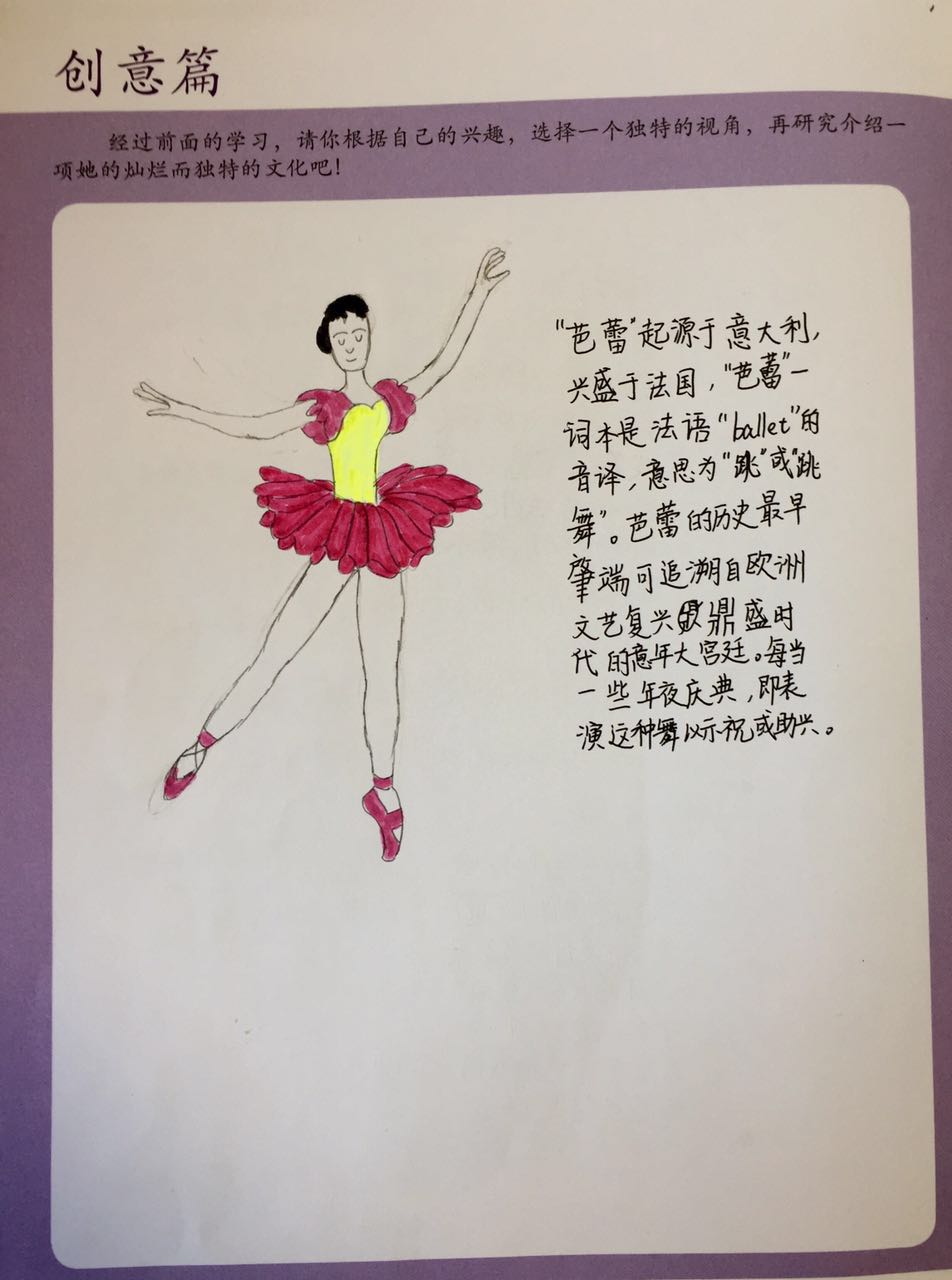 创意篇
经过前面的学习，请你根据自己的兴趣，选择一个独特的视角，再研究介绍一
项她的灿烂而独特的文化吧！
“芭蕾”起源于意大利，
兴盛于法国，“芭蕾”一
词本是法语“ballet”的
音译，意思为“跳”或“跳
舞”。芭蕾的历史最早
肇端可追溯自欧洲
文艺复兴鼎盛时
代的意年大宫廷。每当
一些年夜庆典，即表
演这种舞以示祝或助兴。